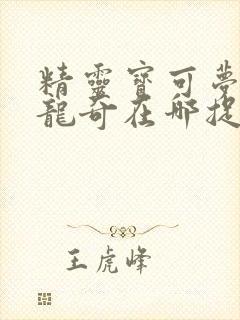 精靈寶可夢
龍奇在哪捉
王虎峰